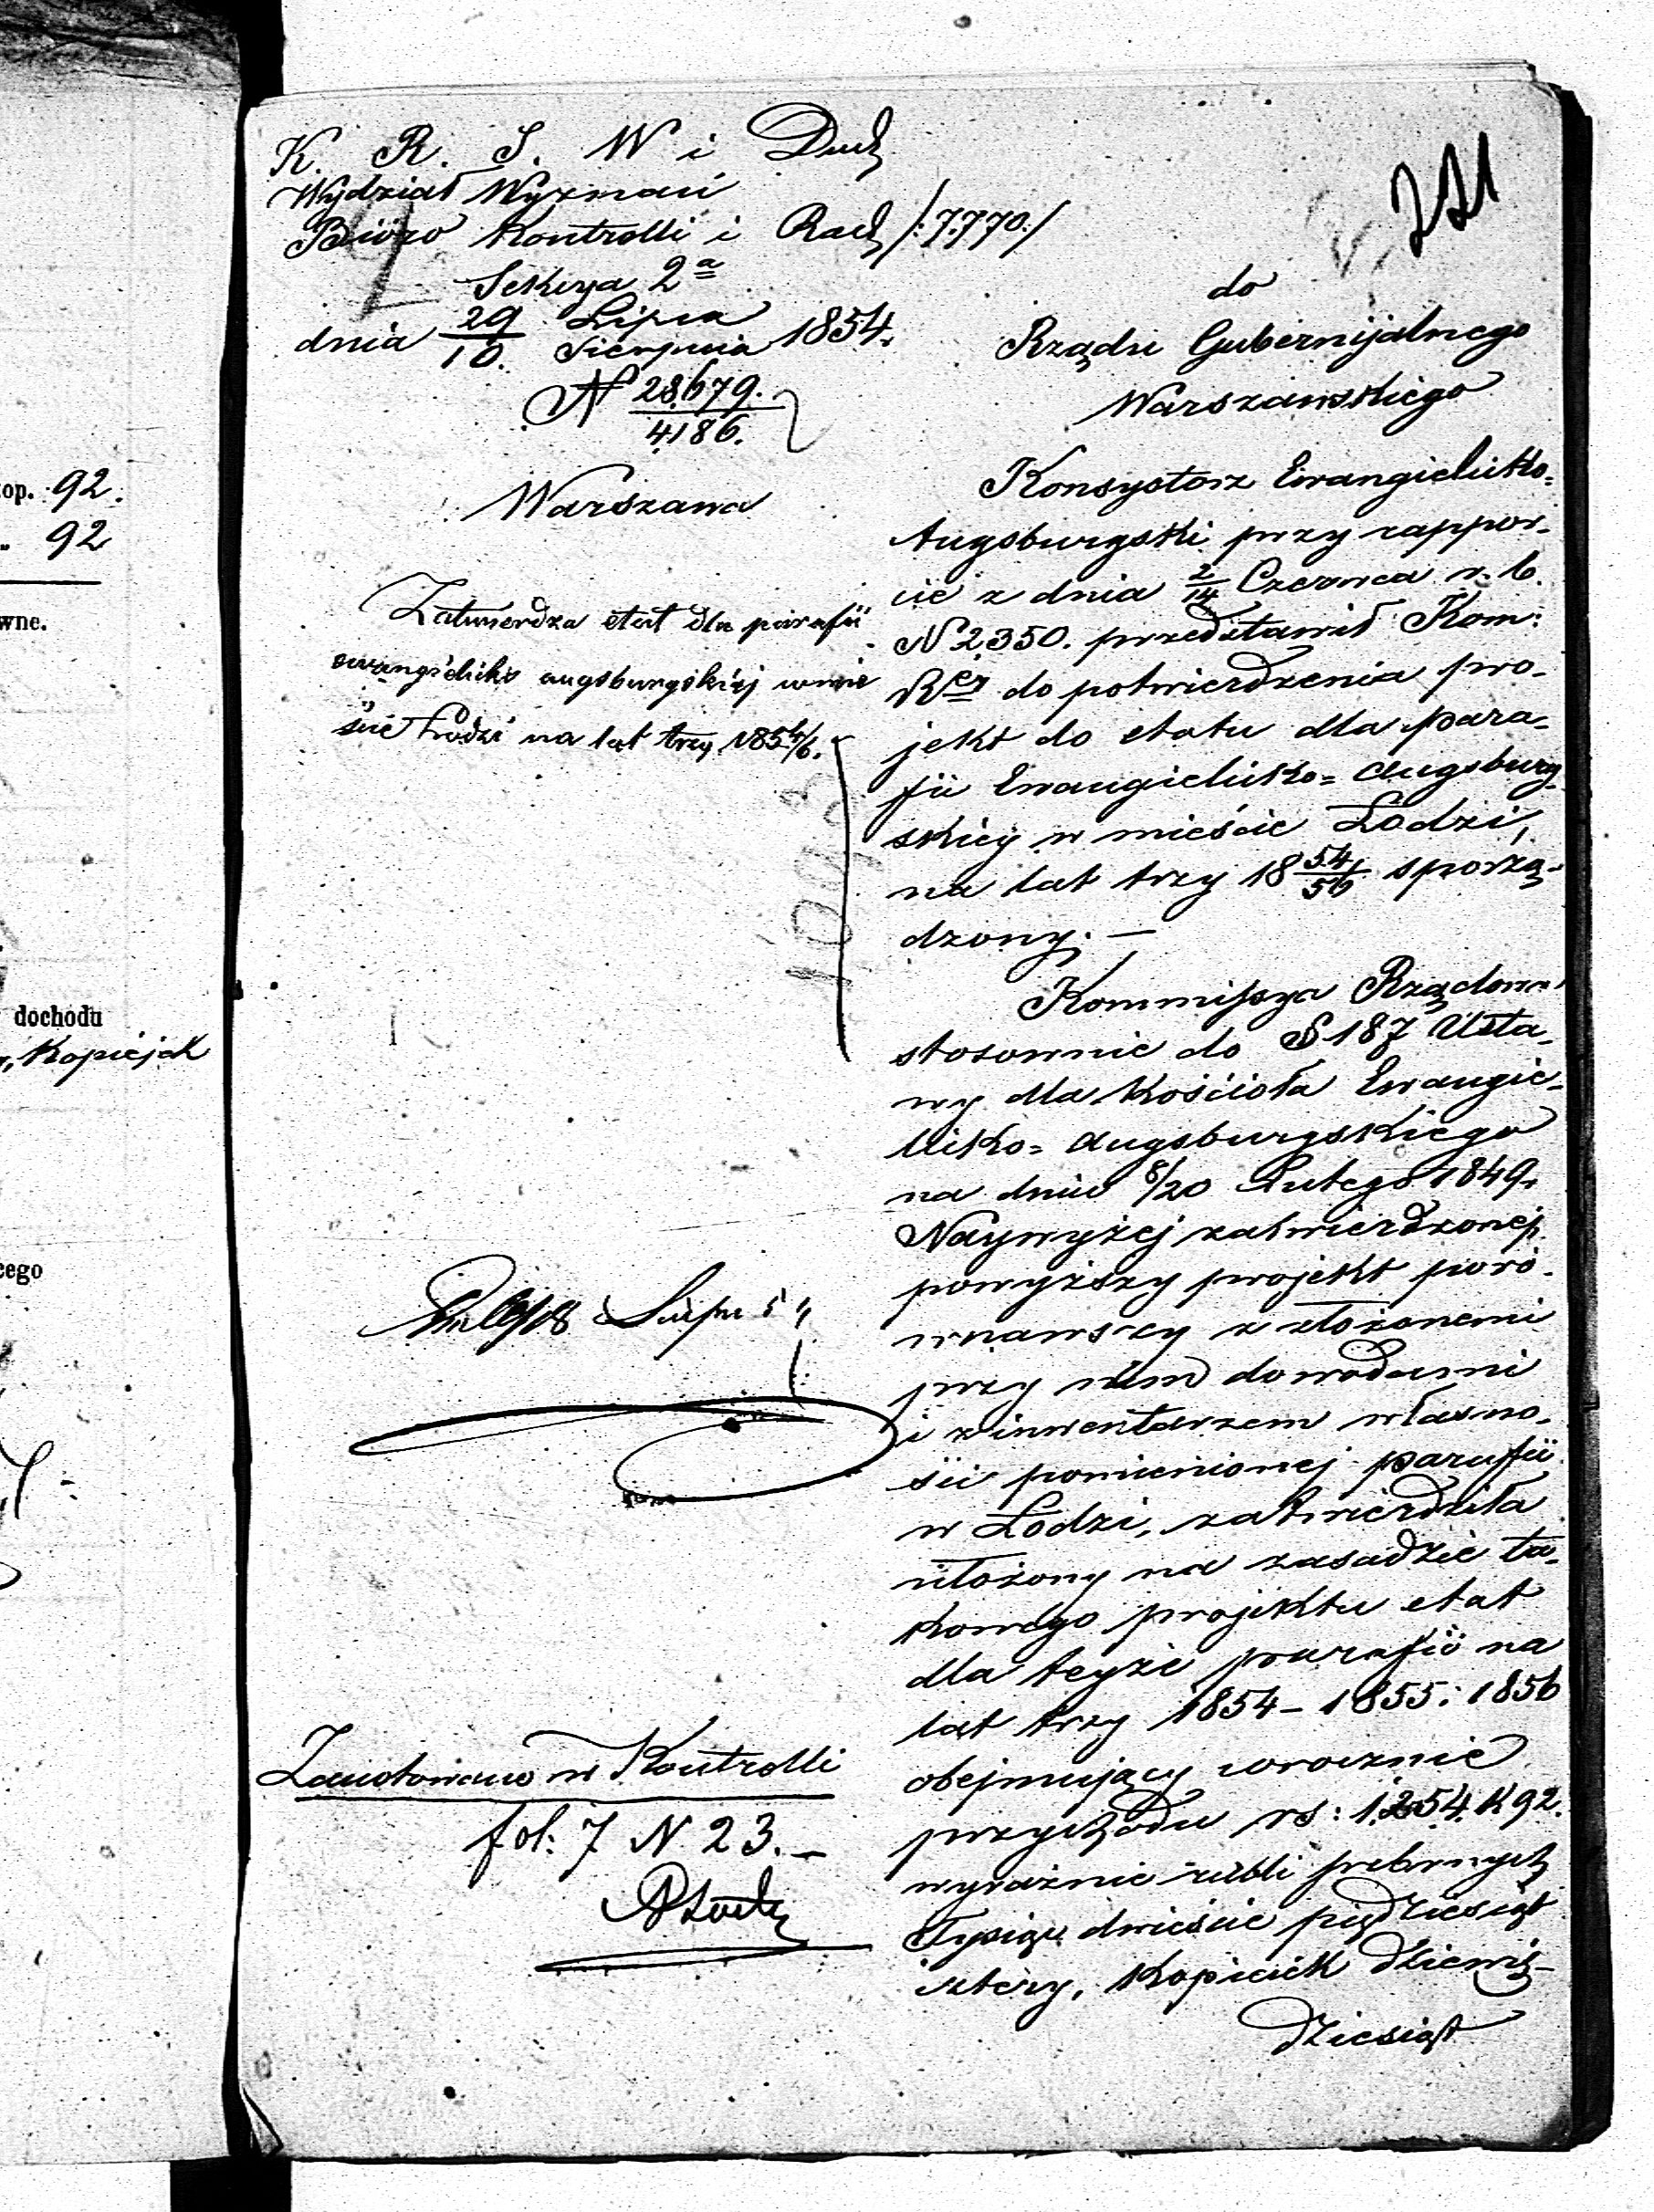 op. 92.
92
wne.
dochodu
Kopiejek
cego
K. R. S. W i Duch
Wydział Wyznań
Biöro Kontrolli i Rach /:7770:/
Sekcya 2a
dnia 29/10. Lipca/Sierpnia 1854.
N 28679./4186.
Warszawa
Zatwierdza etat dla parafii
ewangelicko augsburgskiej w mie
ście Łodzi na lat trzy 1854/6.
1093
Lipca
Zanotowano w Kontrolli
fol: 7 N 23. —
221
do
Rządu Gubernijalnego
Warszawskiego
Konsystorz Ewangielicko=
Augsburgski przy rappor-
cie z dnia 2/14 Czerwca r. b.
N 2350. przedstawił Kom:
Rej do potwierdzenia pro-
jekt do etatu dla para-
fii Ewangielicko= Augsburg-
skiey w mieście Łodzi,
na lat trzy 18 54/56 sporzą-
dzony. —
Kommissya Rządowa
stosownie do § 187 Usta-
wy dla Kościoła Ewangie-
licko= Augsburgskiego
na dniu 8/20 Lutego 1849.
Naywyżej zatwierdzonej,
powyższy projekt poró-
wnawszy z złożonemi
przy nim dowodami
i z inwentarzem własno-
ści pomienionej parafii
w Łodzi, zatwierdziła
ułożony na zasadzie ta-
kowego projektu etat
dla teyże parafii na
lat trzy 1854 – 1855 i 1856
obejmujący corocznie
przychodu rs: 1,254. K 92.
wyraźnie rubli srebrnych
Tysiąc dwieście pięćdziesiąt
cztery, Kopieiek dziewięć-
dziesiąt